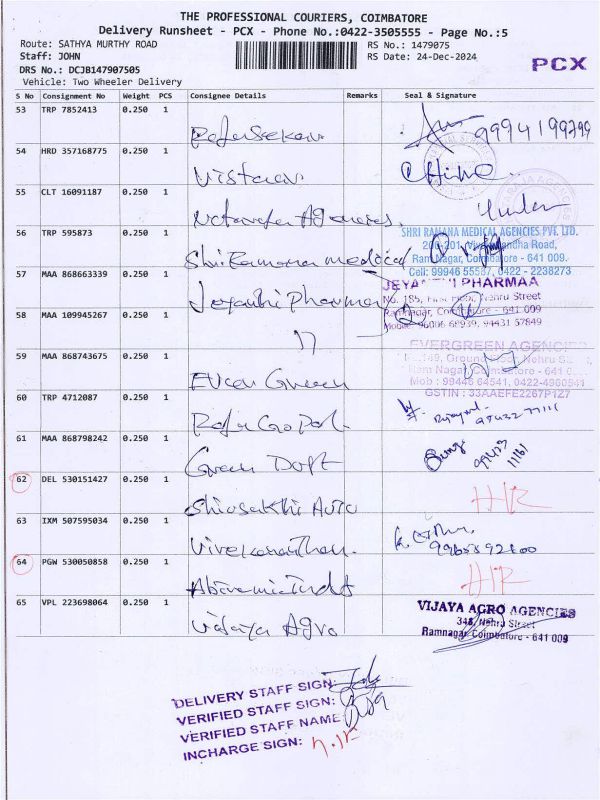 THE PROFESSIONAL COURIERS, COIMBATORE
Delivery Runsheet - PCX - Phone No.:0422-3505555 - Page No.:5
Route: SATHYA MURTHY ROAD
RS No.: 1479075
Staff: JOHN
RS Date: 24-Dec-2024
DRS No.: DCJB147907505
PCX
Vehicle: Two Wheeler Delivery
S No Consignment No Weight PCS Consignee Details Remarks Seal & Signature
53 TRP 7852413 0.250 1
Rajasekar 9994199799
54 HRD 357168775 0.250 1
Vistaar
55 CLT 16091187 0.250 1
Agencies
56 TRP 595873 0.250 1
Shri Ramana medical
SHRI RAMANA MEDICAL AGENCIES PVT. LTD.
Road,
Ram Nagar, Coimbatore - 641 009.
Cell: 99946 55587, 0422 - 2238273
57 MAA 868663339 0.250 1
Jeyanthi Pharma
JEYANTHI PHARMAA
No. 185, First Floor, Nehru Street
Ramnagar, Coimbatore - 641 009
58 MAA 109945267 0.250 1
''
59 MAA 868743675 0.250 1
Ever Green
EVERGREEN AGENCIES
Ram Nagar, Coimbatore - 641 0
Mob : 99446 64541, 0422-4960541
GSTIN : 33AAEFE2267P1Z7
60 TRP 4712087 0.250 1
Raja Gopal
61 MAA 868798242 0.250 1
Green Dott
99423
11161
62 DEL 530151427 0.250 1
Shivsakthi Auto
63 IXM 507595034 0.250 1
Vivekananthan
64 PGW 530050858 0.250 1
65 VPL 223698064 0.250 1
Vijaya Agro
VIJAYA AGRO AGENCIES
348, Nehru Street
Ramnagar, Coimbatore - 641 009
DELIVERY STAFF SIGN:
VERIFIED STAFF SIGN:
VERIFIED STAFF NAME:
INCHARGE SIGN: